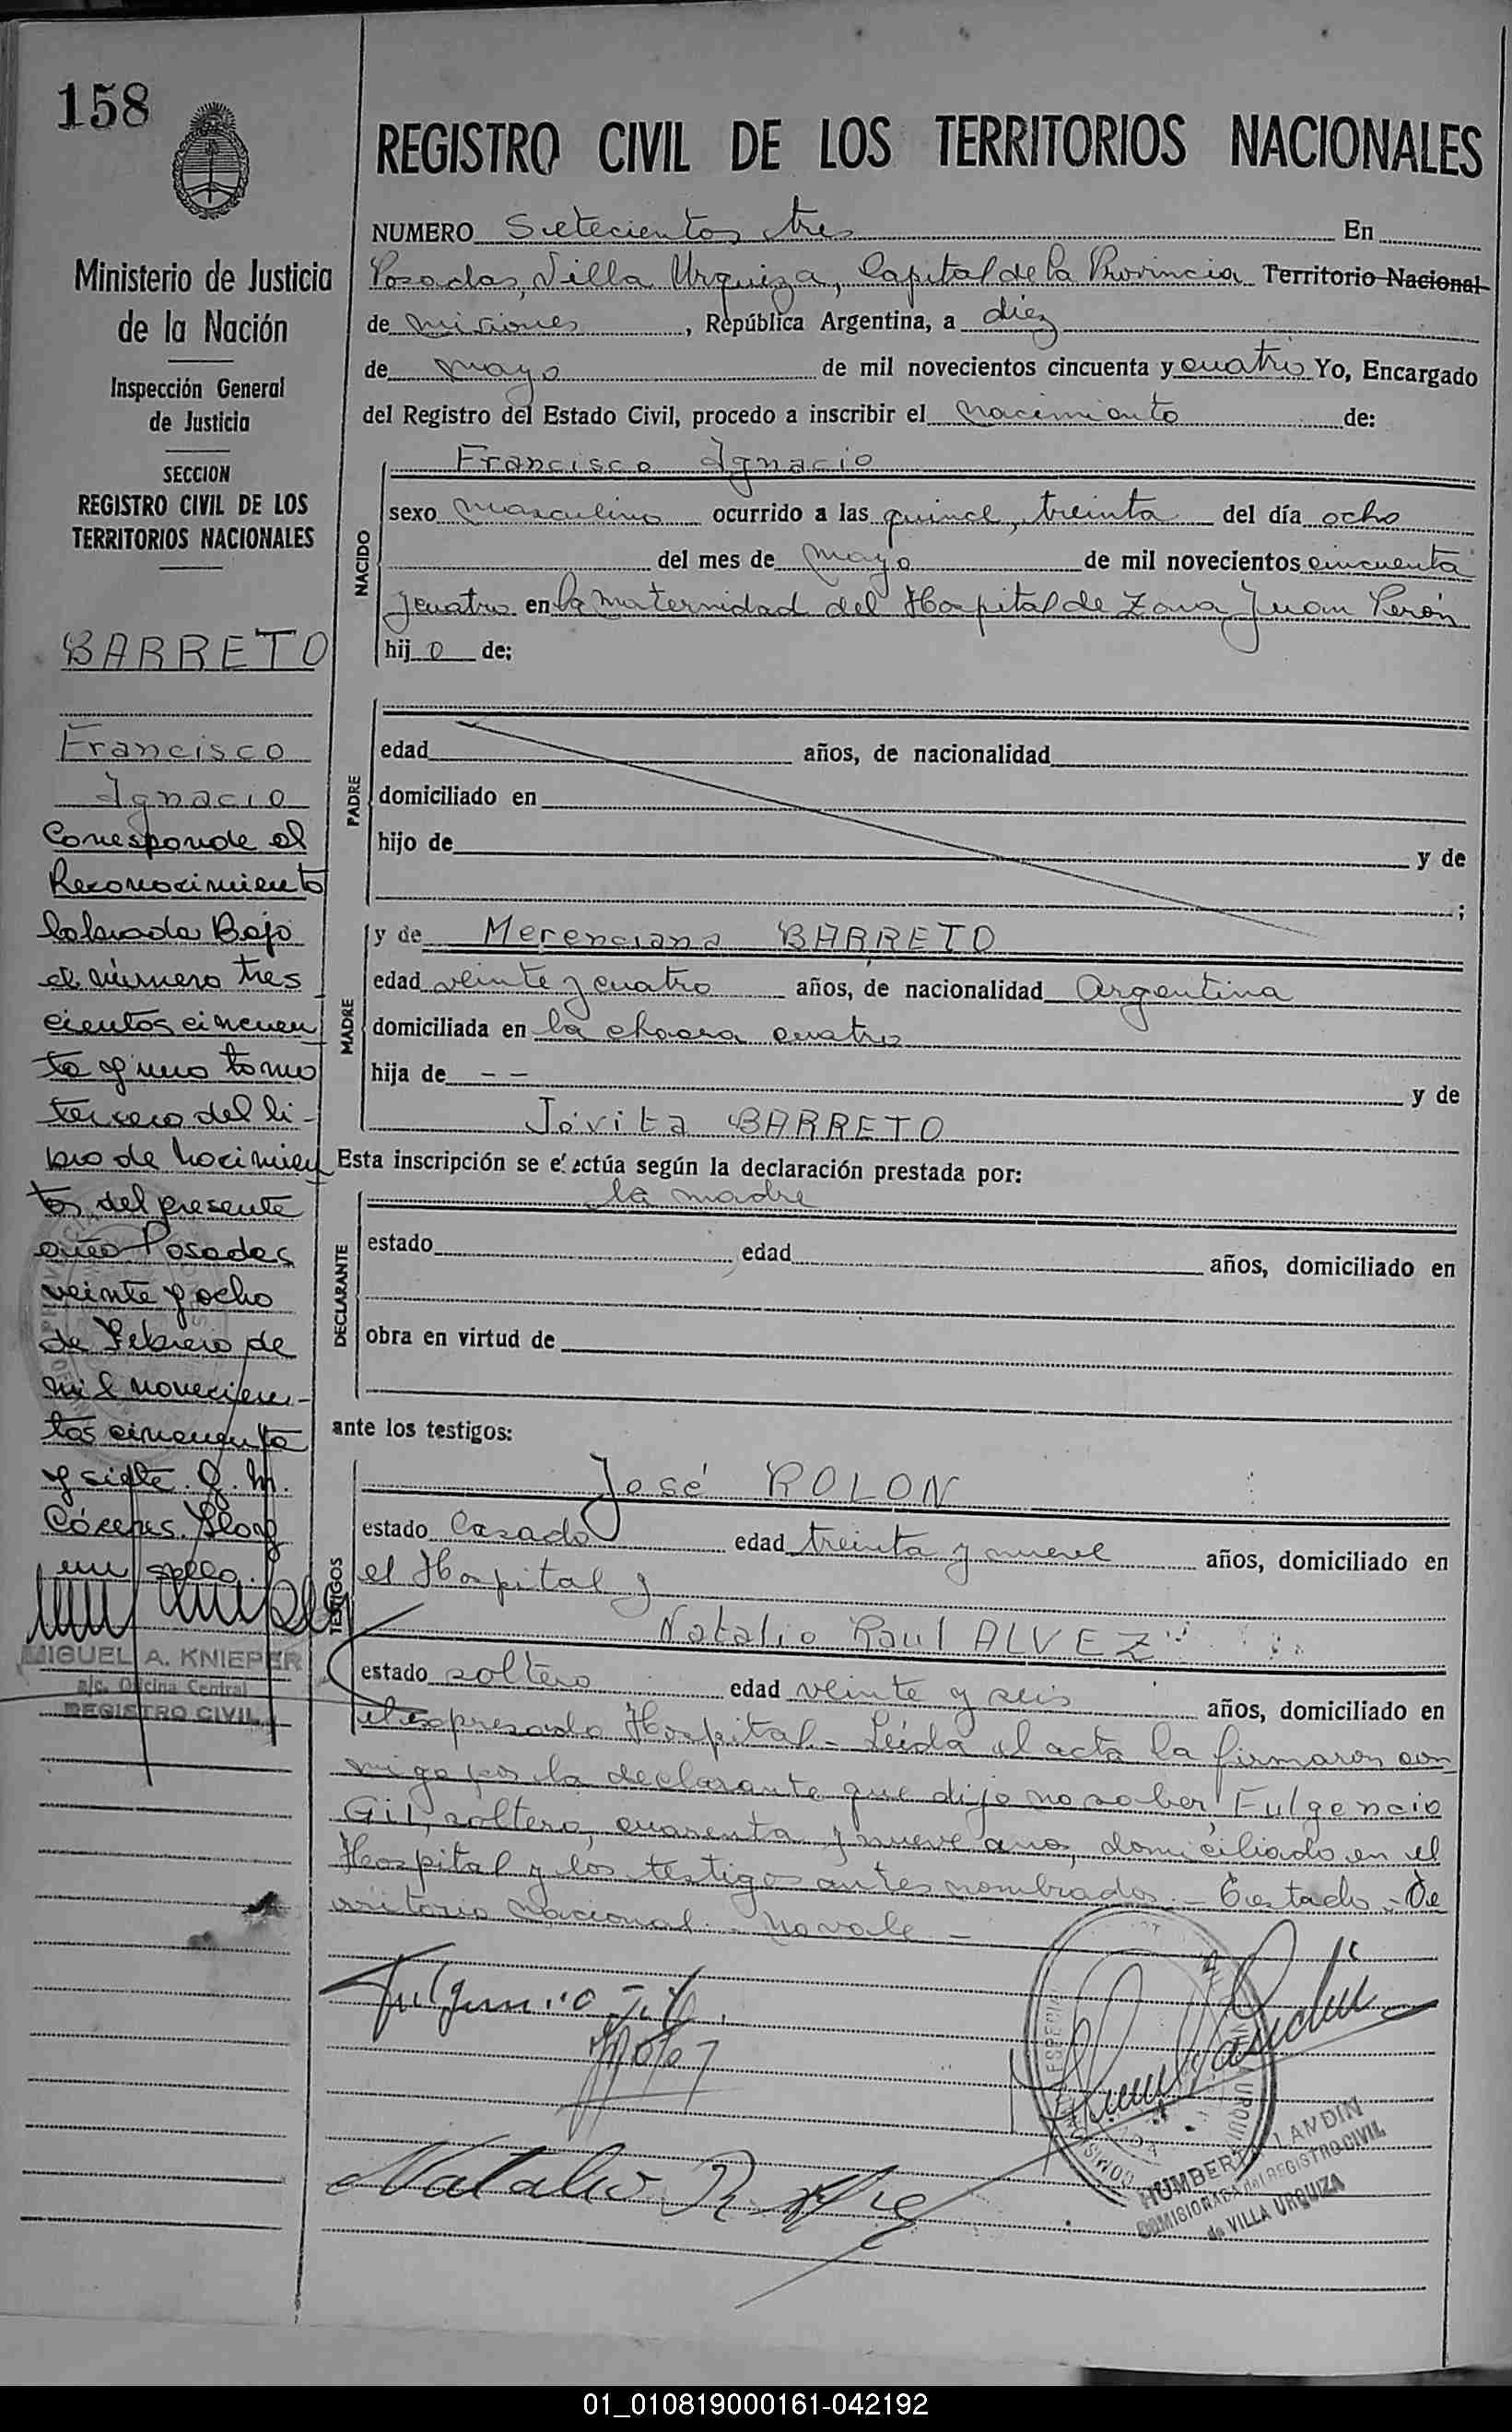 158
Ministerio de Justicia
de la Nación
Inspección General
de Justicia
SECCION
REGISTRO CIVIL DE LOS
TERRITORIOS NACIONALES
BARRETO
Francisco
Ignacio
Corresponde el
Reconocimiento
labrada Bajo
el número tres
cientos cincuen
ta y uno tomo
tercero del li-
bro de Nacimien
tos del presente
año Posadas
veinte y ocho
de Febrero de
mil novecien-
tos cincuenta
y siete. J. M.
un sello.
MIGUEL A. KNIEPER
a/c. Oficina Central
REGISTRO CIVIL
REGISTRO CIVIL DE LOS TERRITORIOS NACIONALES
NUMERO Setecientos tres En
Posadas, Villa Urquiza, Capital de la Provincia Territorio Nacional
de Misiones, República Argentina, a diez
de mayo de mil novecientos cincuenta y cuatro Yo, Encargado
del Registro del Estado Civil, procedo a inscribir el nacimiento de:
NACIDO
Francisco Ignacio
sexo masculino ocurrido a las quince, treinta del día ocho
del mes de mayo de mil novecientos cincuenta
y cuatro en la maternidad del Hospital de Zona Juan Perón
hijo de:
PADRE
edad años, de nacionalidad
domiciliado en
hijo de y de
;
MADRE
y de Merenciana BARRETO
edad veinte y cuatro años, de nacionalidad Argentina
domiciliada en la chacra cuatro
hija de - - y de
Jovita BARRETO
Esta inscripción se efectúa según la declaración prestada por:
DECLARANTE
la madre
estado edad años, domiciliado en
obra en virtud de
ante los testigos:
TESTIGOS
José ROLON
estado Casado edad treinta y nueve años, domiciliado en
el Hospital y
Natalio Raul ALVEZ
estado soltero edad veinte y seis años, domiciliado en
el expresado Hospital.- Leida el acta la firmaron con
migo por la declarante que dijo no saber, Fulgencio
Gil, soltero, cuarenta y nueve años, domiciliado en el
Hospital y los testigos antes nombrados.- Testado - Te
rritorio nacional.- no vale -
Fulgencio Gil
Natalio R.
VILLA URQUIZA
HUMBERTO LANDIN
COMISIONADO del REGISTRO CIVIL
de VILLA URQUIZA
01_010819000161-042192